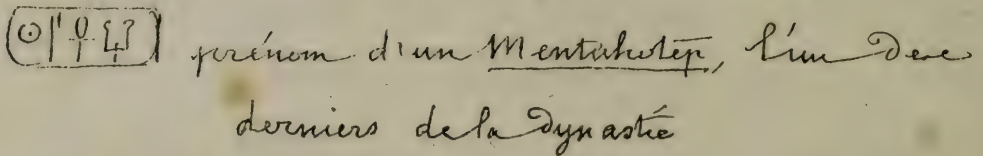 prénom d'un Mentuhotep, l'un des
derniers de la Dynastie